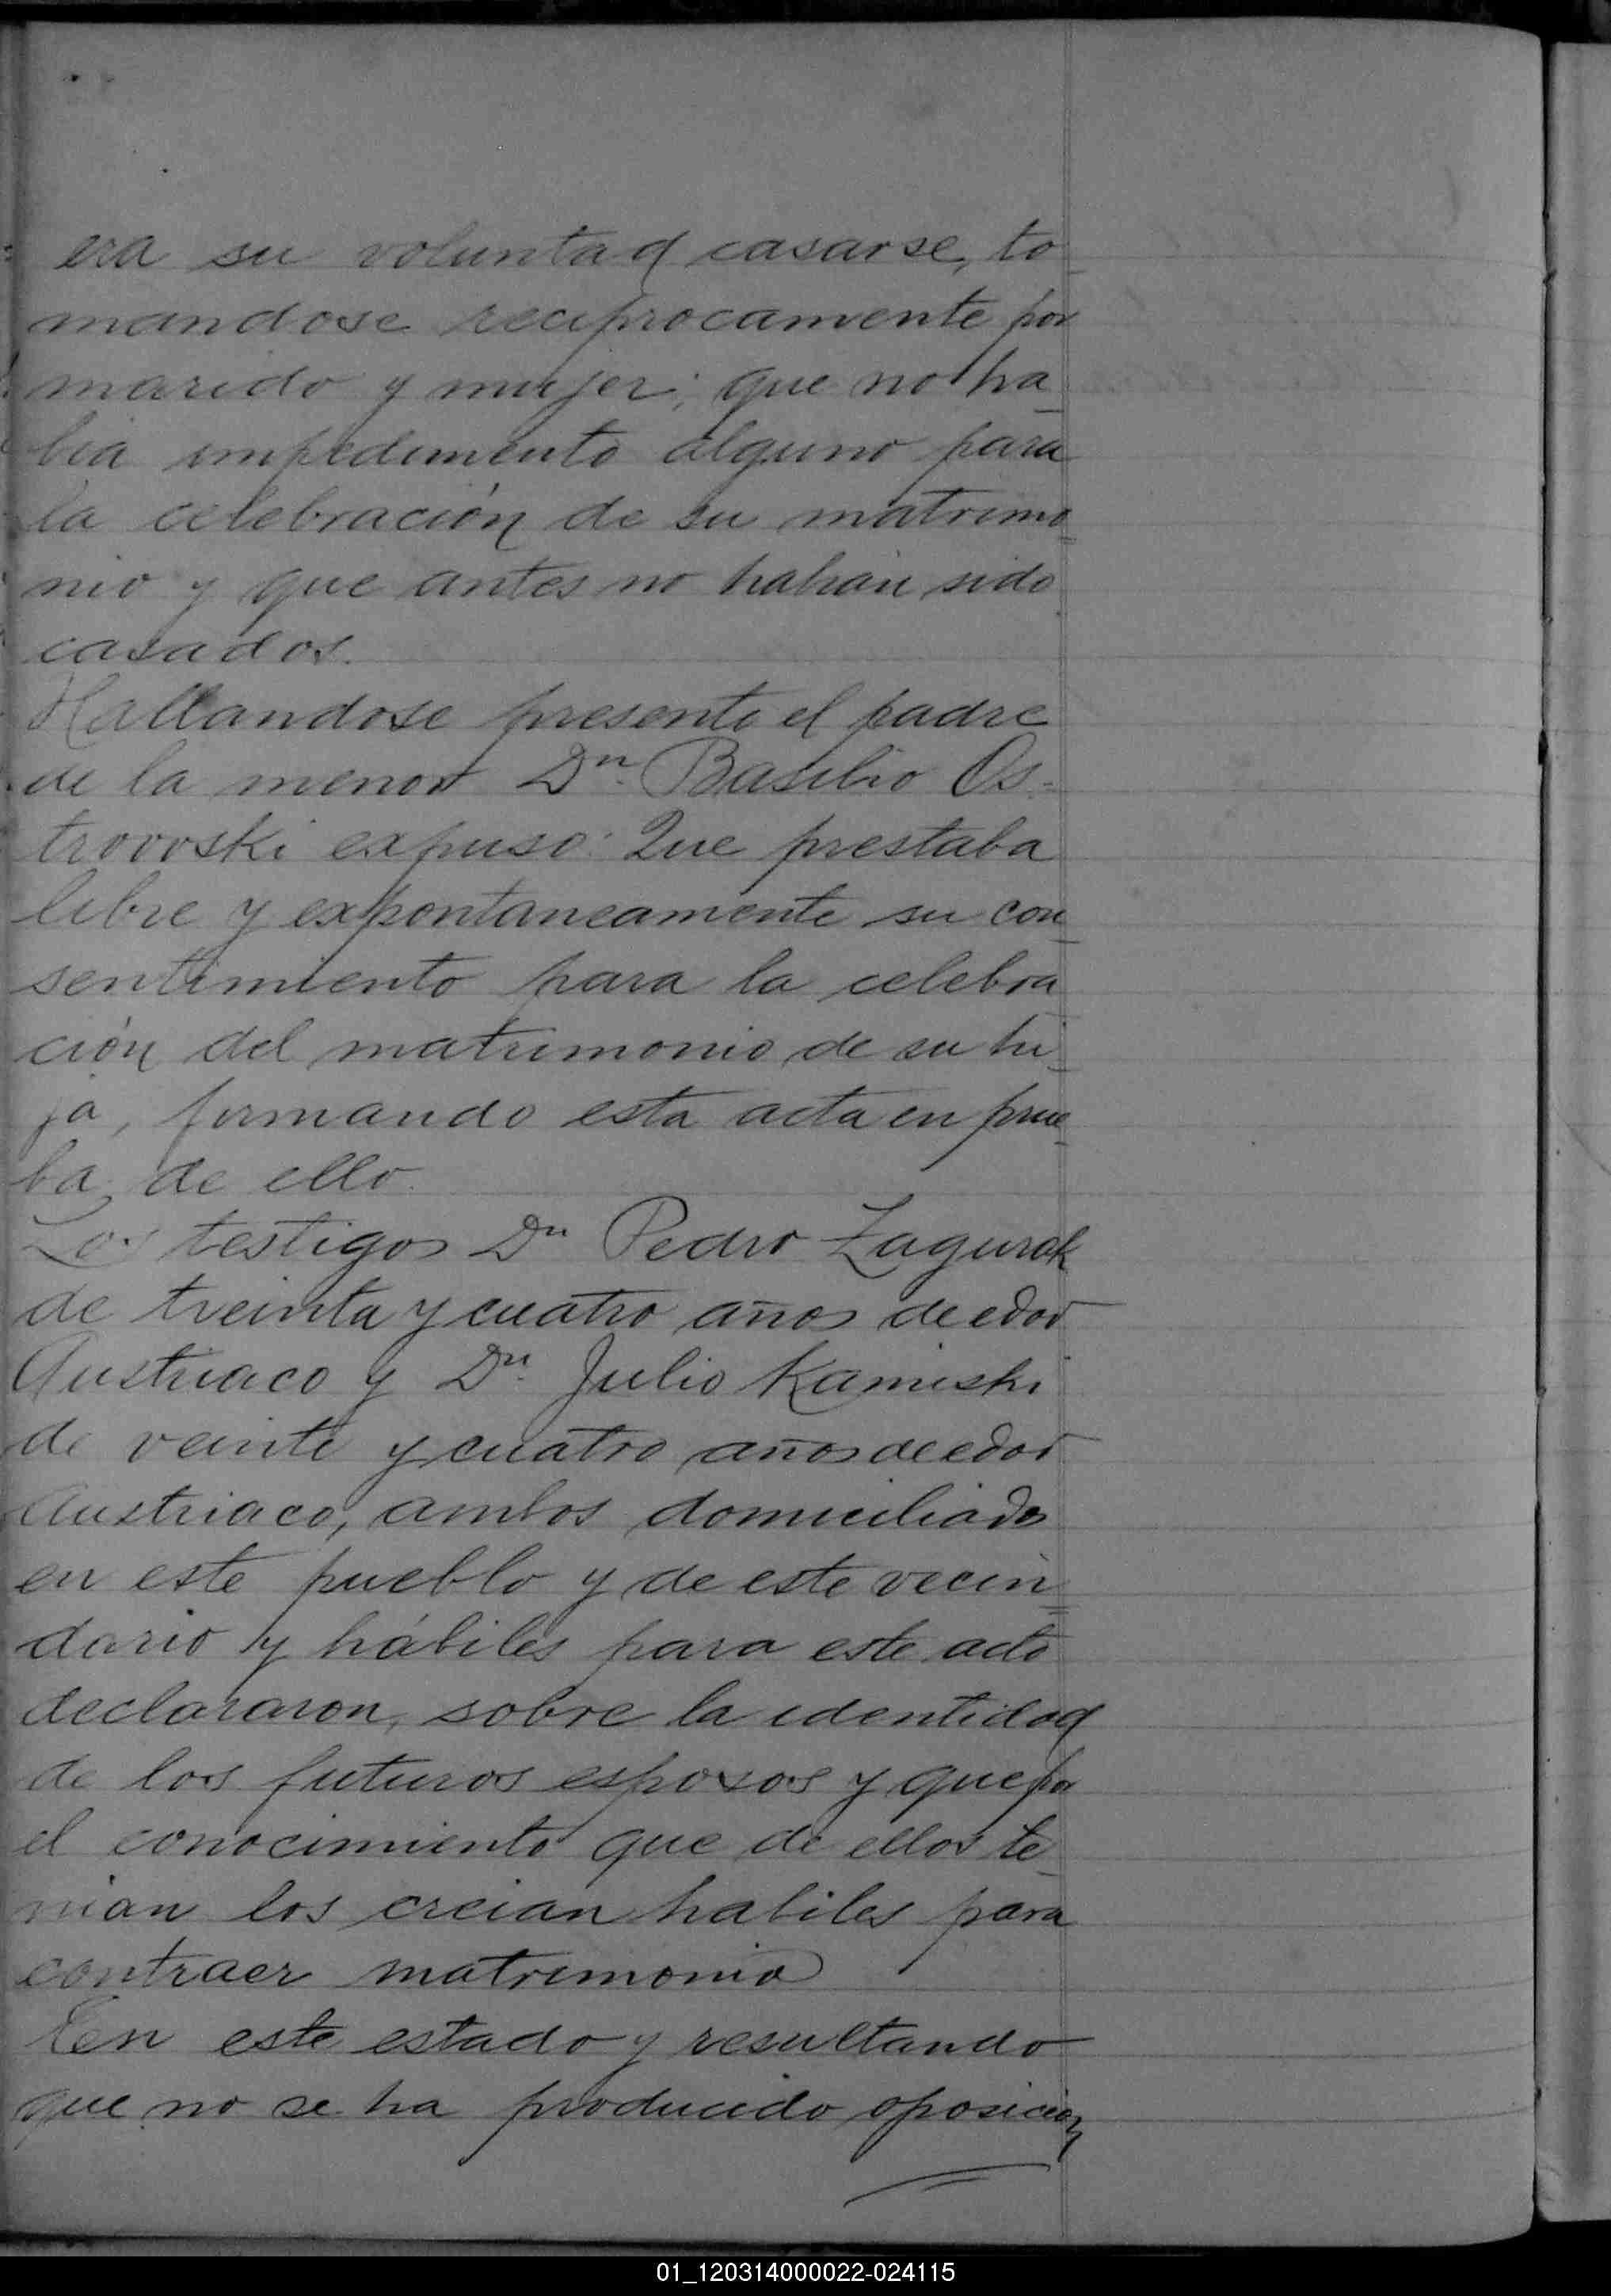 era su voluntad casarse, to
mandose reciprocamente por
marido y mujer; que no ha
bia impedimento alguno para
la celebración de su matrimo
nio y que antes no habian sido
casados.
Hallandose presente el padre
de la menor Dn. Basilio Os=
trovoski expuso: Que prestaba
libre y expontaneamente su con
sentimiento para la celebra
ción del matrimonio de su hi
ja, firmando esta acta en prue
ba de ello.
Los testigos Dn Pedro Zagurak
de treinta y cuatro años de edad
Austriaco y Dn. Julio Kamiski
de veinte y cuatro años de edad
Austriaco, ambos domiciliados
en este pueblo y de este vecin
dario y hábiles para este acto
declararon, sobre la identidad
de los futuros esposos y que por
el conocimiento que de ellos te
nian los creian habiles para
contraer matrimonio
En este estado y resultando
que no se ha producido oposición
01_120314000022-024115